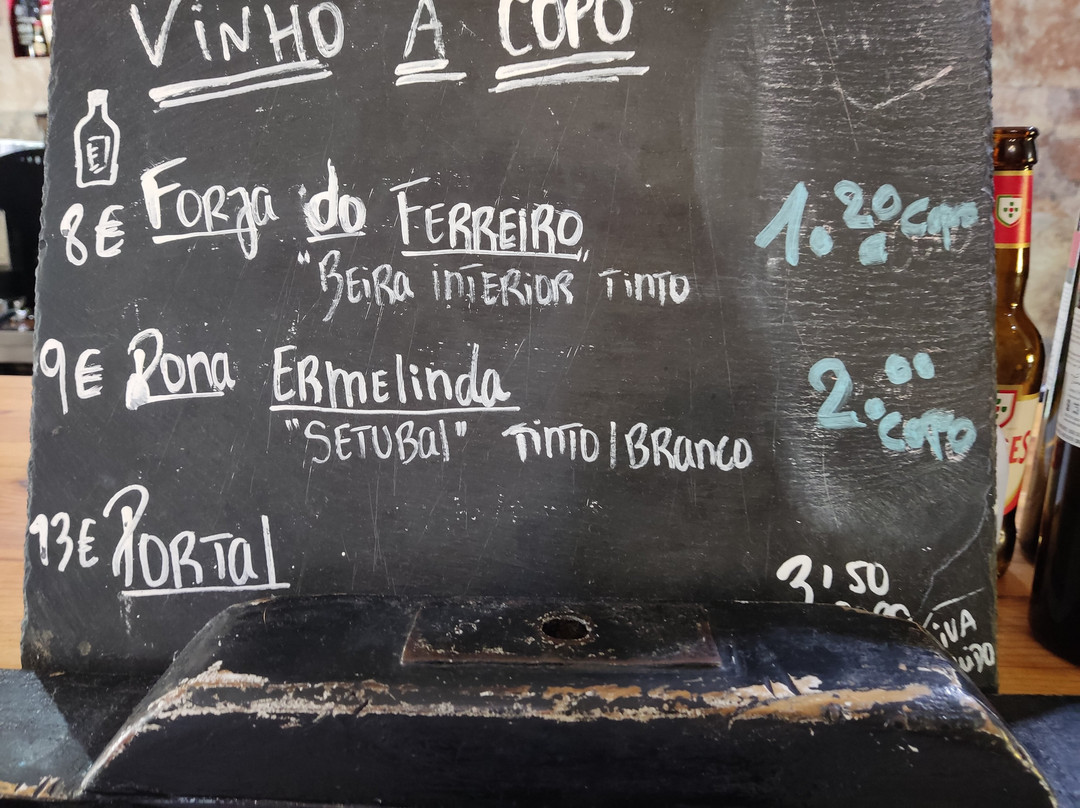 VINHO A COPO
8€ Forja do FERREIRO 1.20 copo
"BEIRA INTERIOR" TINTO
9€ Dona ERmelinda 2.00 copo
"SETUBal" TINTO/BRanco
13€ PORTal 3,50
IVA